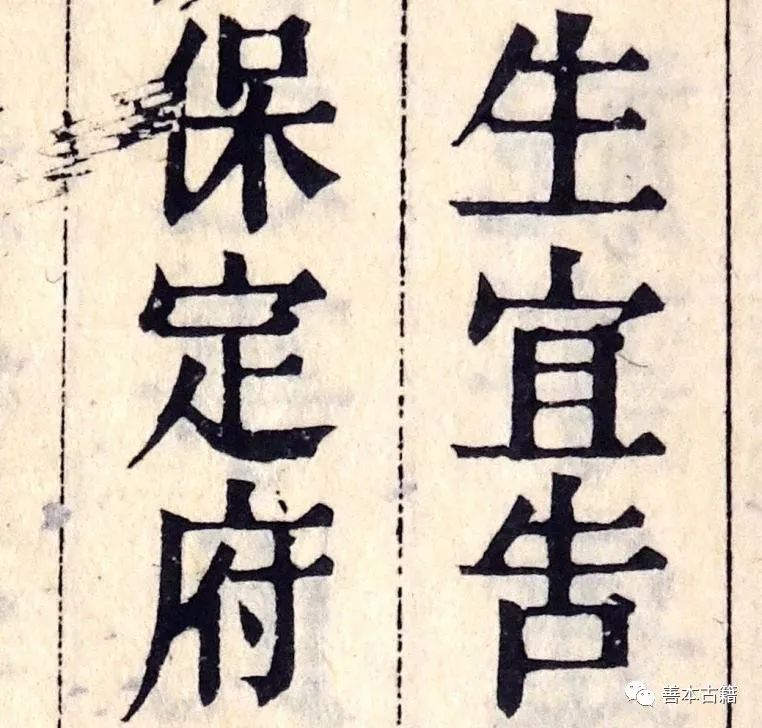 生宜告
保定府
善本古籍